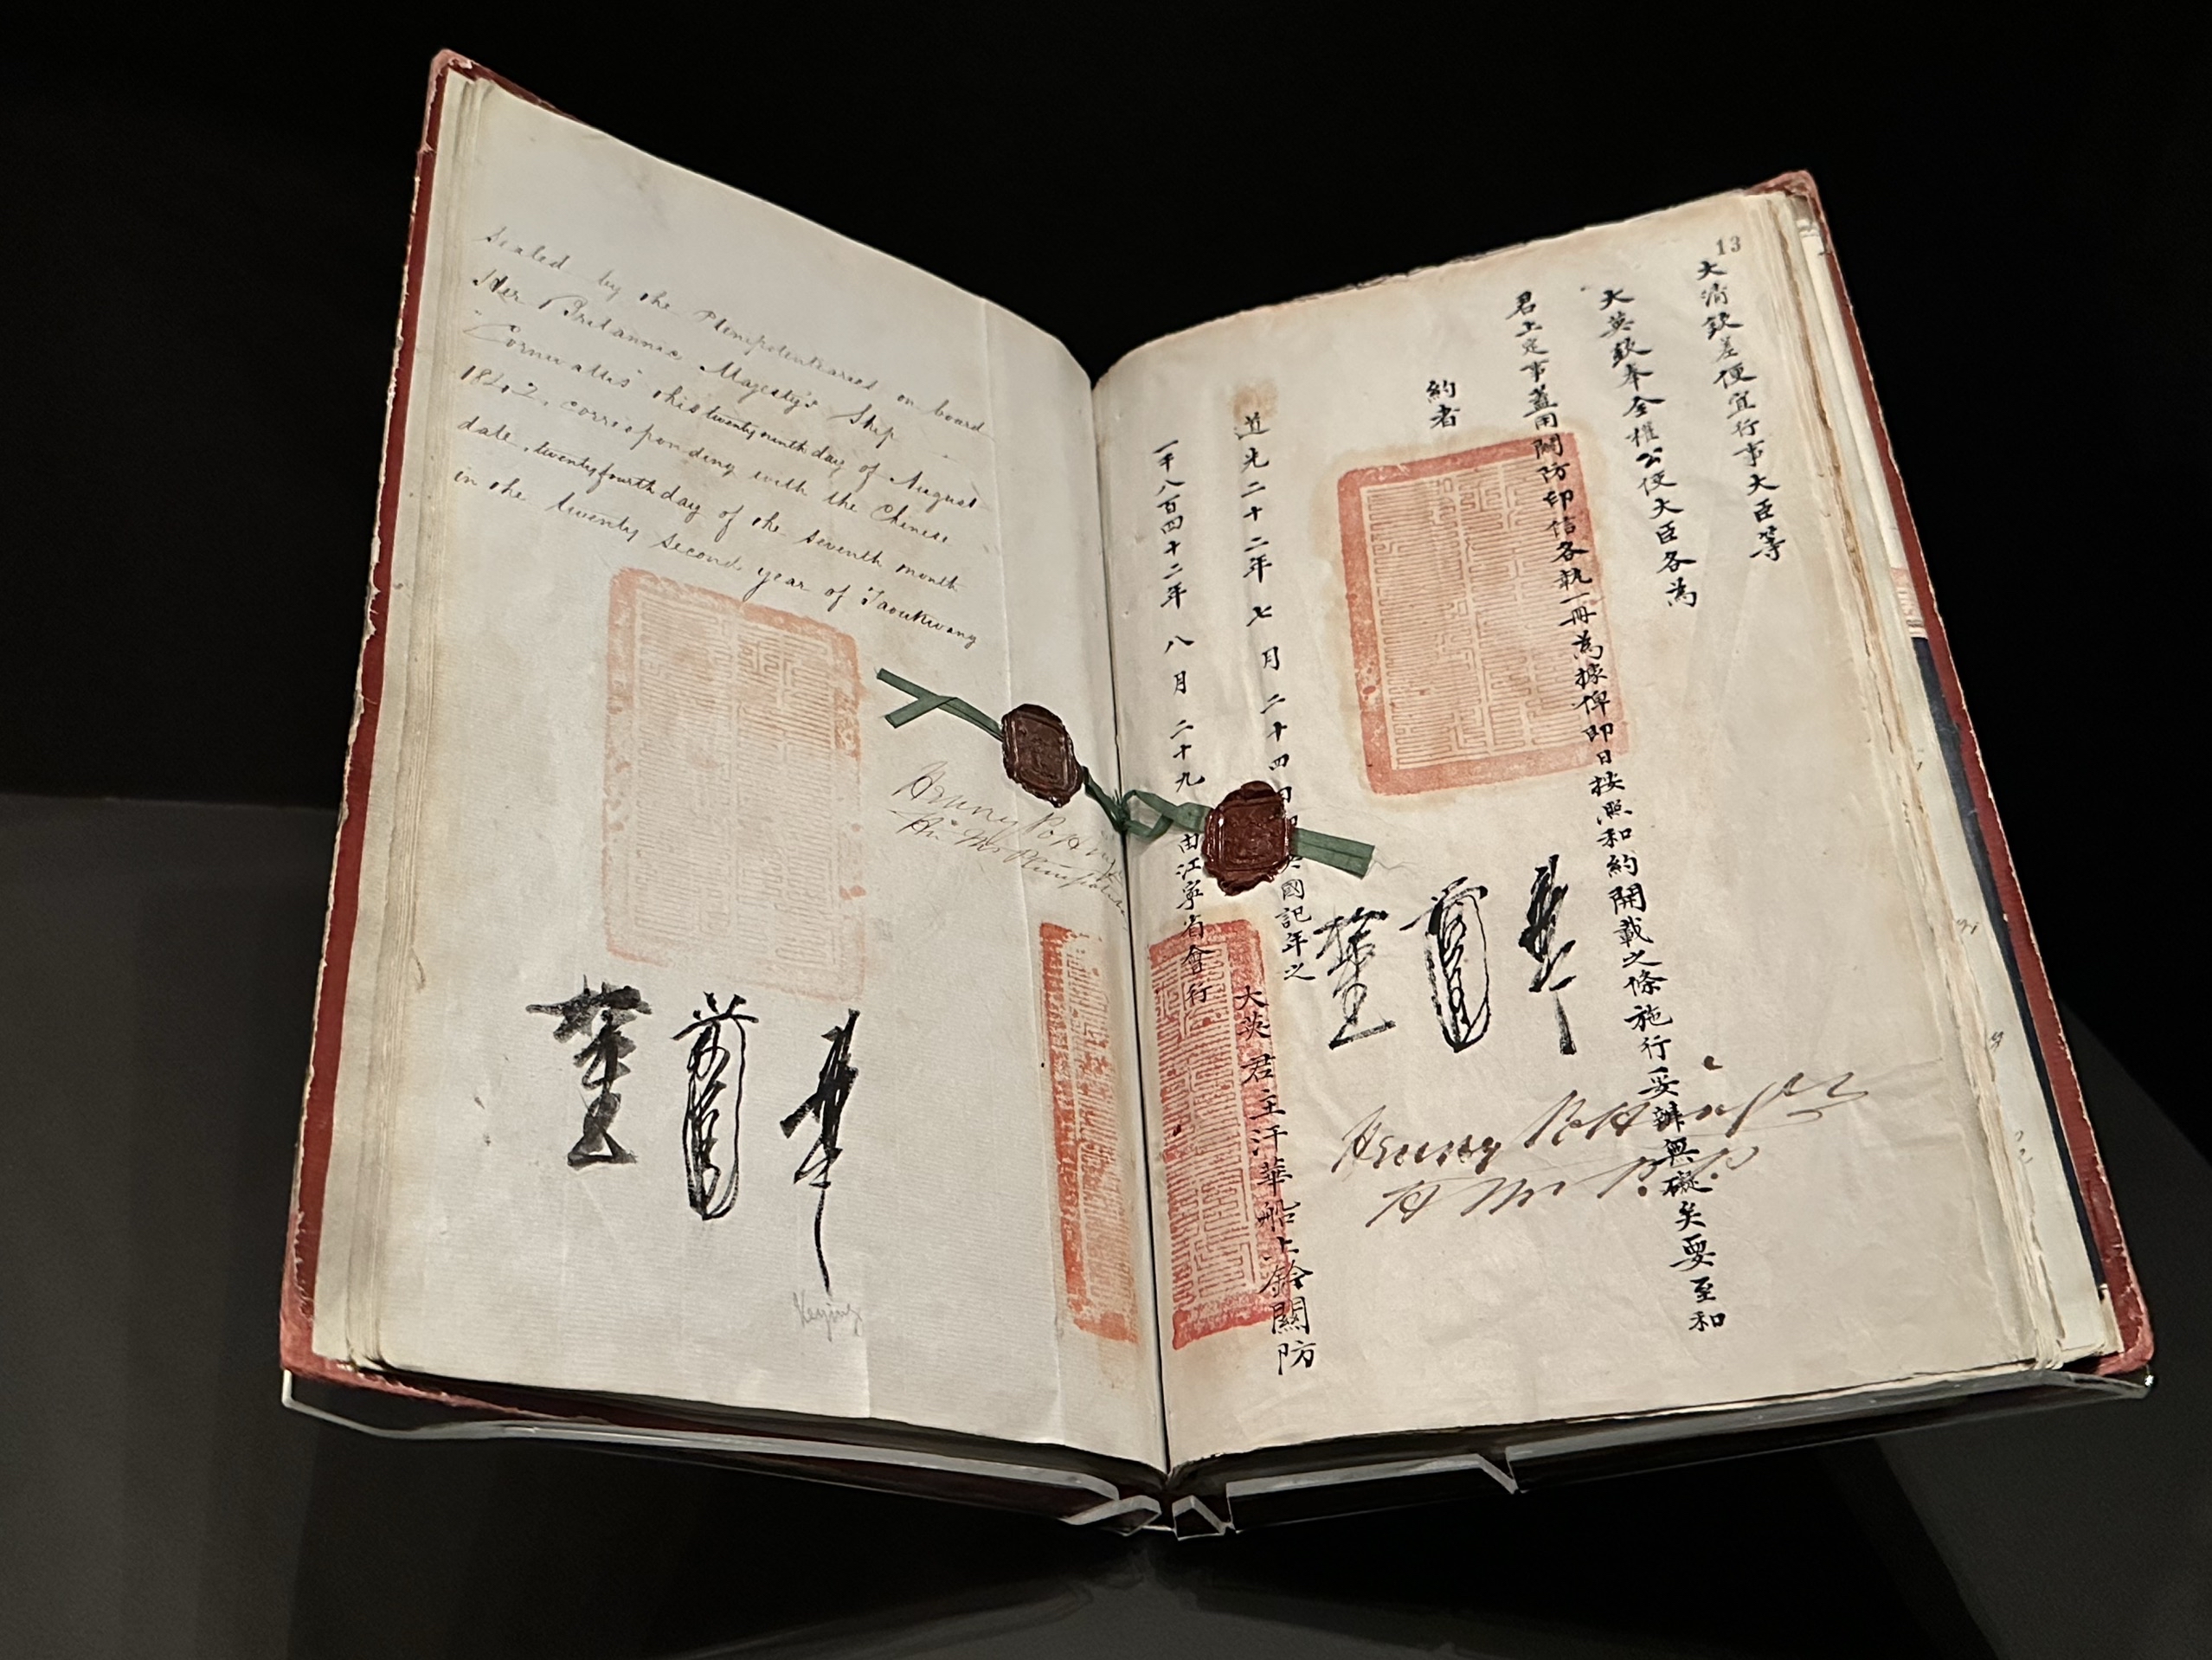 Sealed by the Plenipotentiaries on board
Her Britannic Majesty's Ship
"Cornwallis" this twenty ninth day of August
1842, corresponding with the Chinese
date, twenty fourth day of the seventh month
in the twenty second year of Taoukwang
Henry Pottinger
Keying
13
大清欽差便宜行事大臣等
大英欽奉全權公使大臣各為
君上定事蓋用關防印信各執一冊為據俾即日按照和約開載之條施行妥辦無礙矣要至和
約者
道光二十二年七月二十四日即英國記年之
一千八百四十二年八月二十九 由江寧省會行
大英君主汗華船上鈐關防
Henry Pottinger
H M P. P.